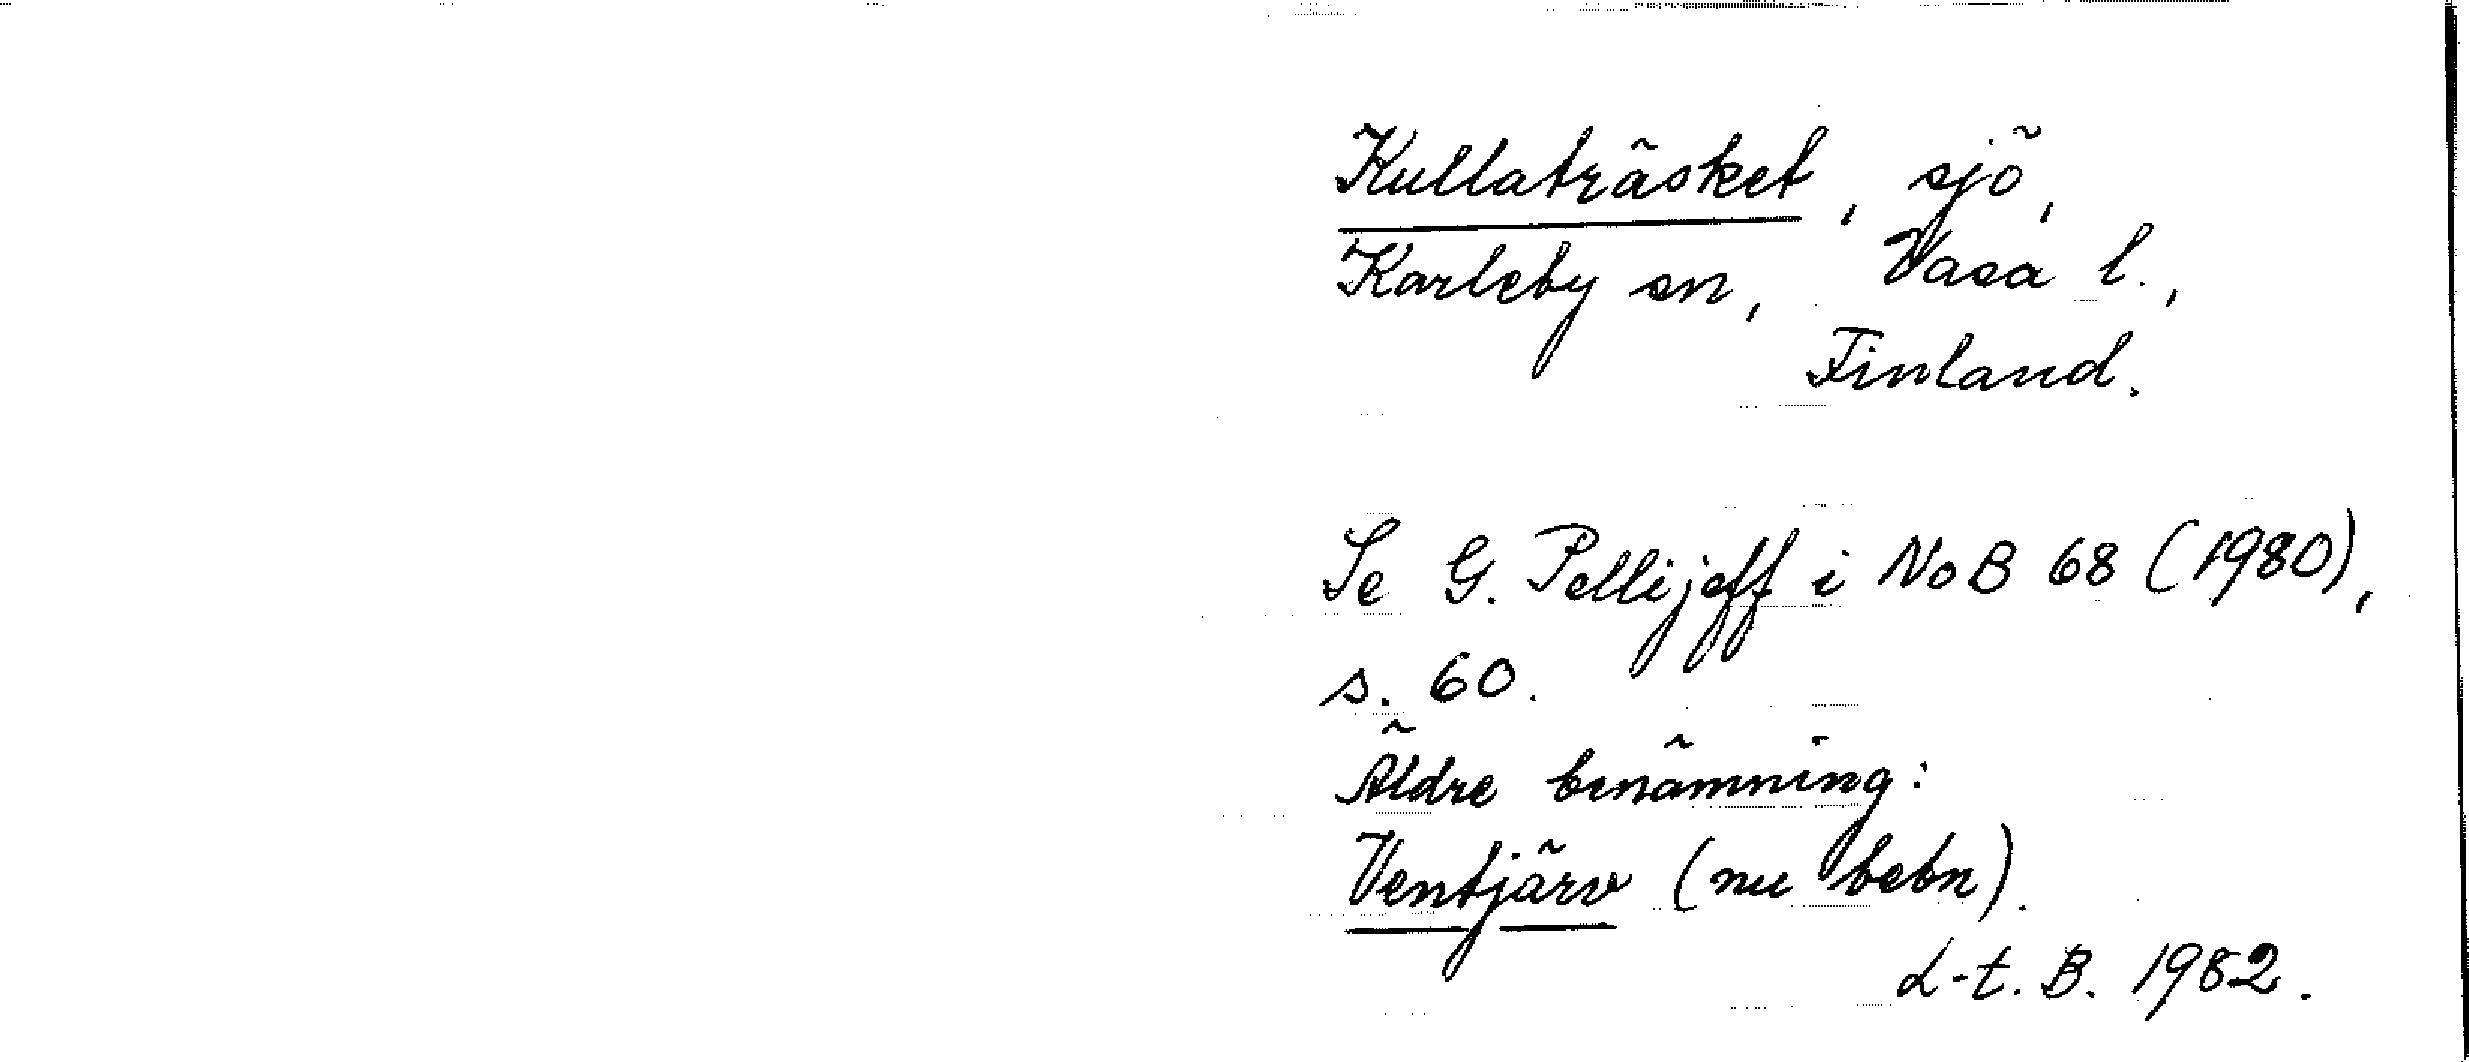 Kullaträsket, sjö,
Karleby sn, Vasa l.,
Finland.
Se G. Pellijeff i NoB 68 (1980),
s. 60.
Äldre benämning:
Ventjärv (nu bebn).
L-t. B. 1982.